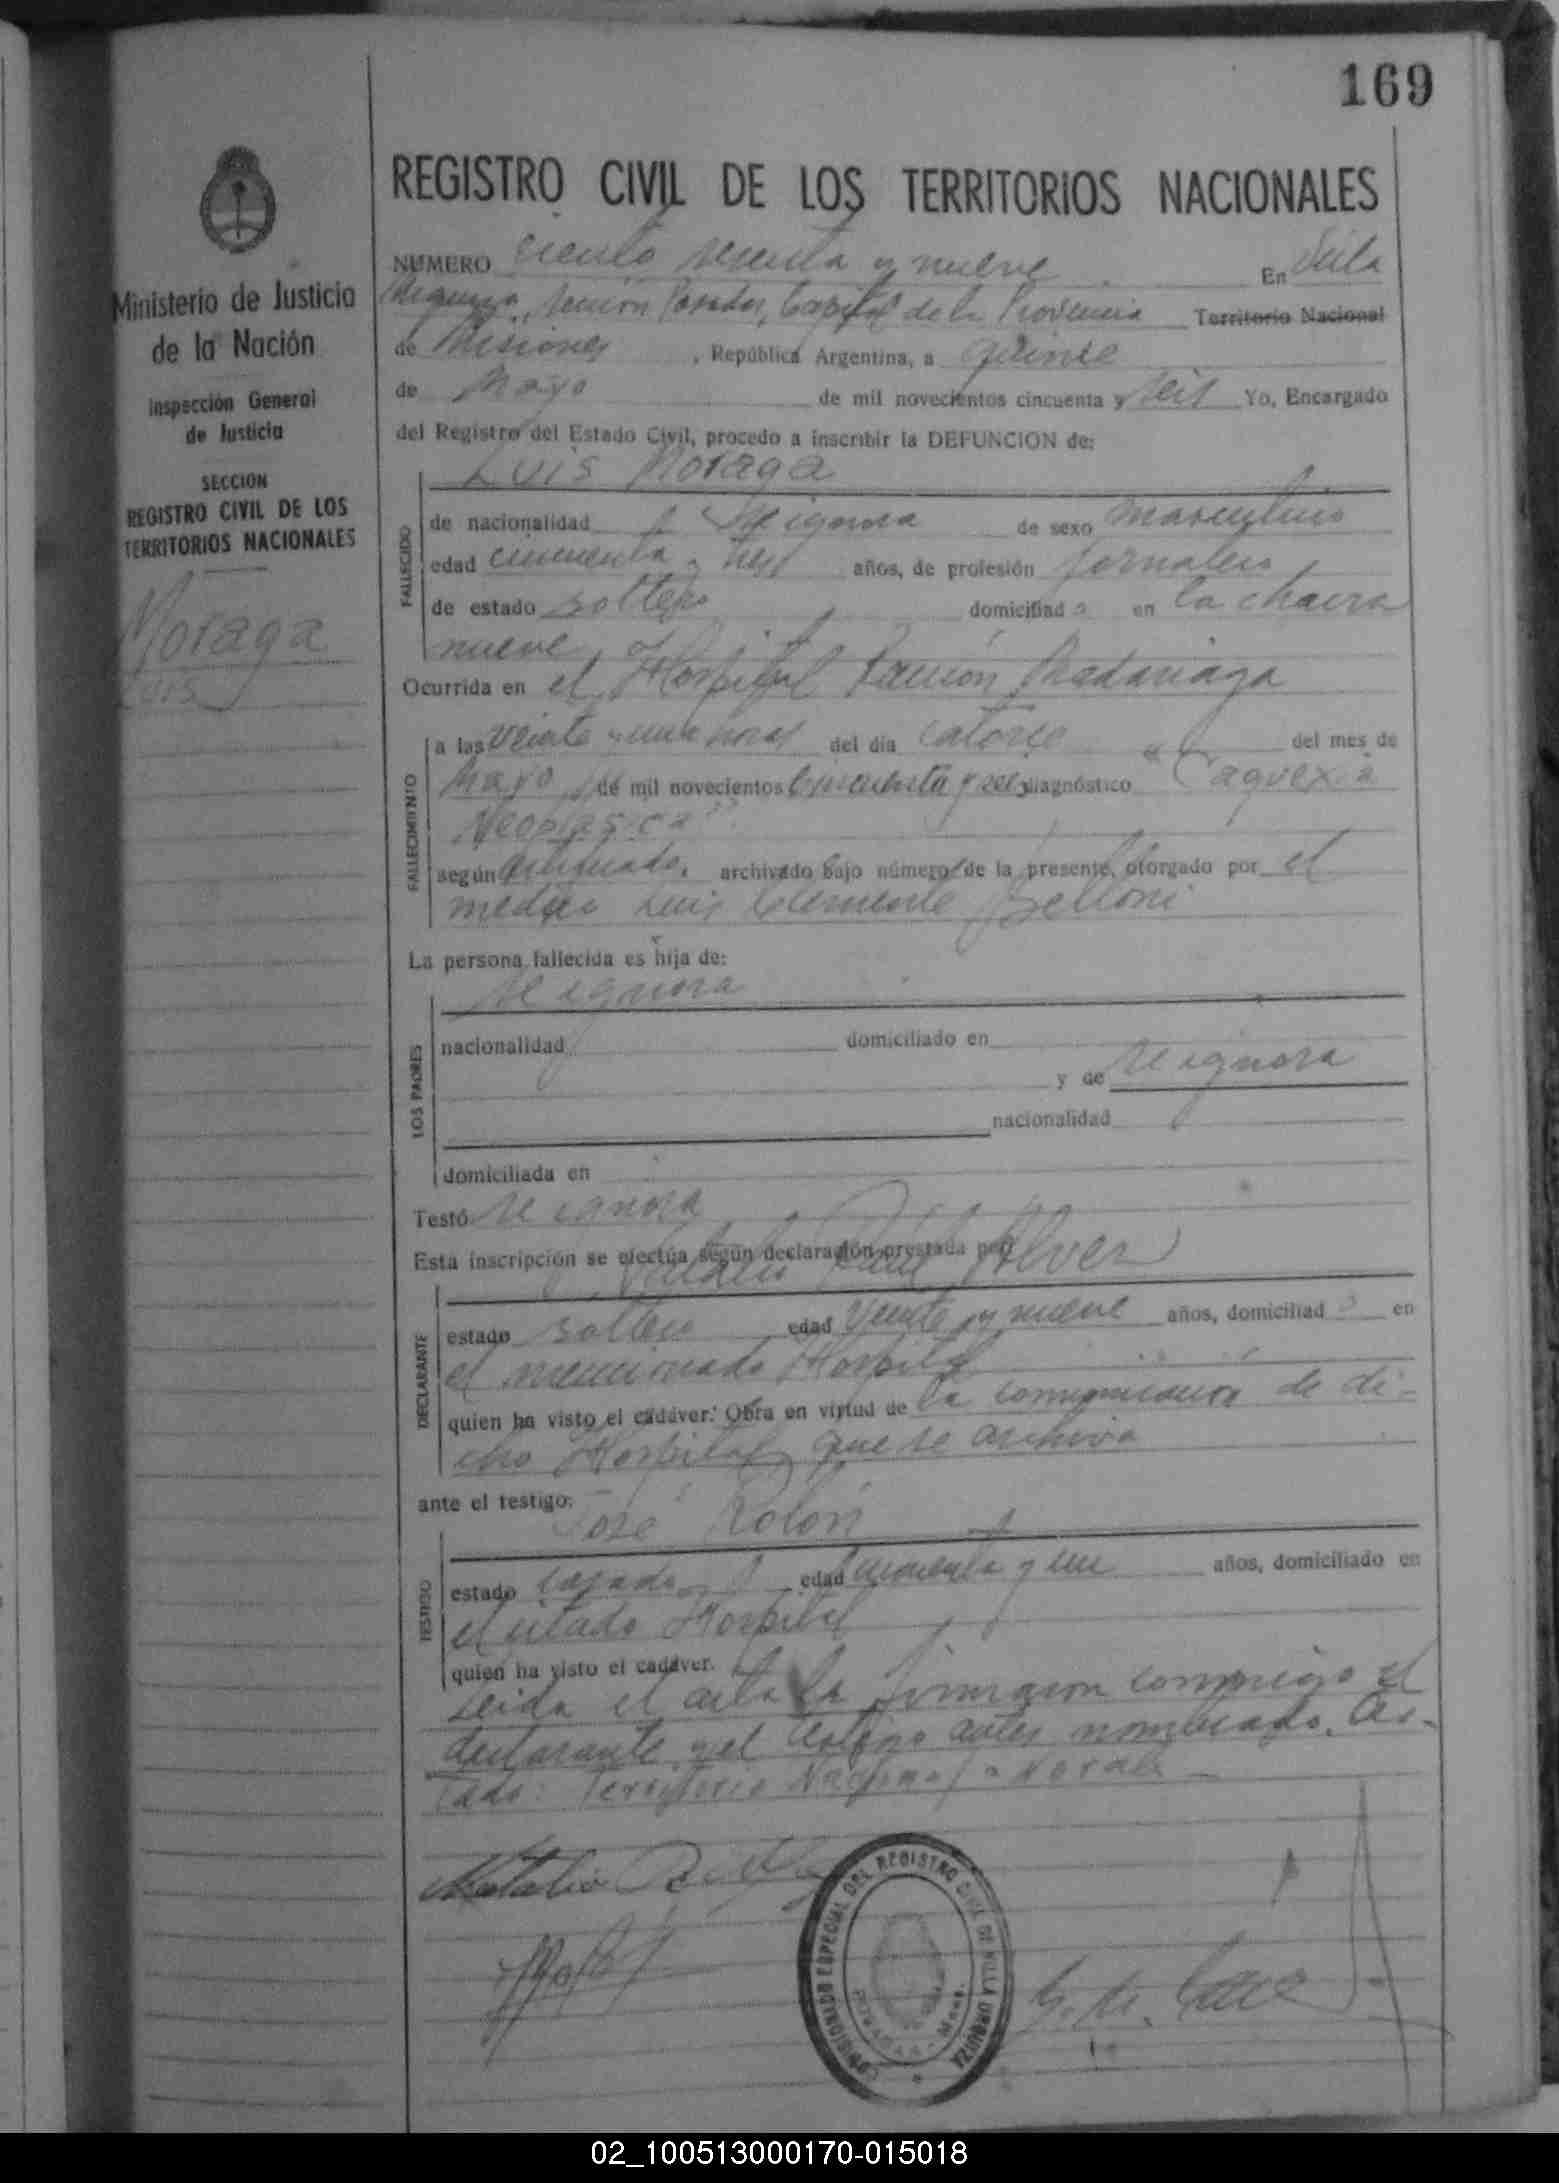 169
REGISTRO CIVIL DE LOS TERRITORIOS NACIONALES
Ministerio de Justicia
de la Nación
Inspección General
de Justicia
SECCION
REGISTRO CIVIL DE LOS
TERRITORIOS NACIONALES
Moraga
Luis
NUMERO ciento sesenta y nueve En Villa
Urquiza, sección Posadas, Capital de la Provincia Territorio Nacional
de Misiones, República Argentina, a quince
de Mayo de mil novecientos cincuenta y seis Yo, Encargado
del Registro del Estado Civil, procedo a inscribir la DEFUNCION de:
FALLECIDO
Luis Moraga
de nacionalidad se ignora de sexo masculino
edad cincuenta y tres años, de profesión jornalero
de estado soltero domiciliado en la chacra
nueve
Ocurrida en el Hospital Ramón Madariaga
FALLECIMIENTO
a las veinte y una horas del día catorce del mes de
Mayo de mil novecientos cincuenta y seis diagnóstico "Caquexia
Neoplásica".
según certificado, archivado bajo número de la presente, otorgado por el
médico Luis Clemente Belloni
La persona fallecida es hija de:
LOS PADRES
se ignora
nacionalidad domiciliado en
y de se ignora
nacionalidad
domiciliada en
Testó se ignora
Esta inscripción se efectúa según declaración prestada por
DECLARANTE
Natalio Alvez
estado soltero edad veinte y nueve años, domiciliado en
el mencionado Hospital
quien ha visto el cadáver. Obra en virtud de la comunicación de di-
cho Hospital que se archiva
ante el testigo:
TESTIGO
José Rolón
estado casado edad cincuenta y un años, domiciliado en
el citado Hospital
quien ha visto el cadáver.
Leida el acta la firmaron conmigo el
declarante y el testigo antes nombrado. Tes-
tado: Territorio Nacional = No vale
Natalio
COMISIONADO ESPECIAL DEL REGISTRO CIVIL DE VILLA URQUIZA
POSADAS
02_100513000170-015018